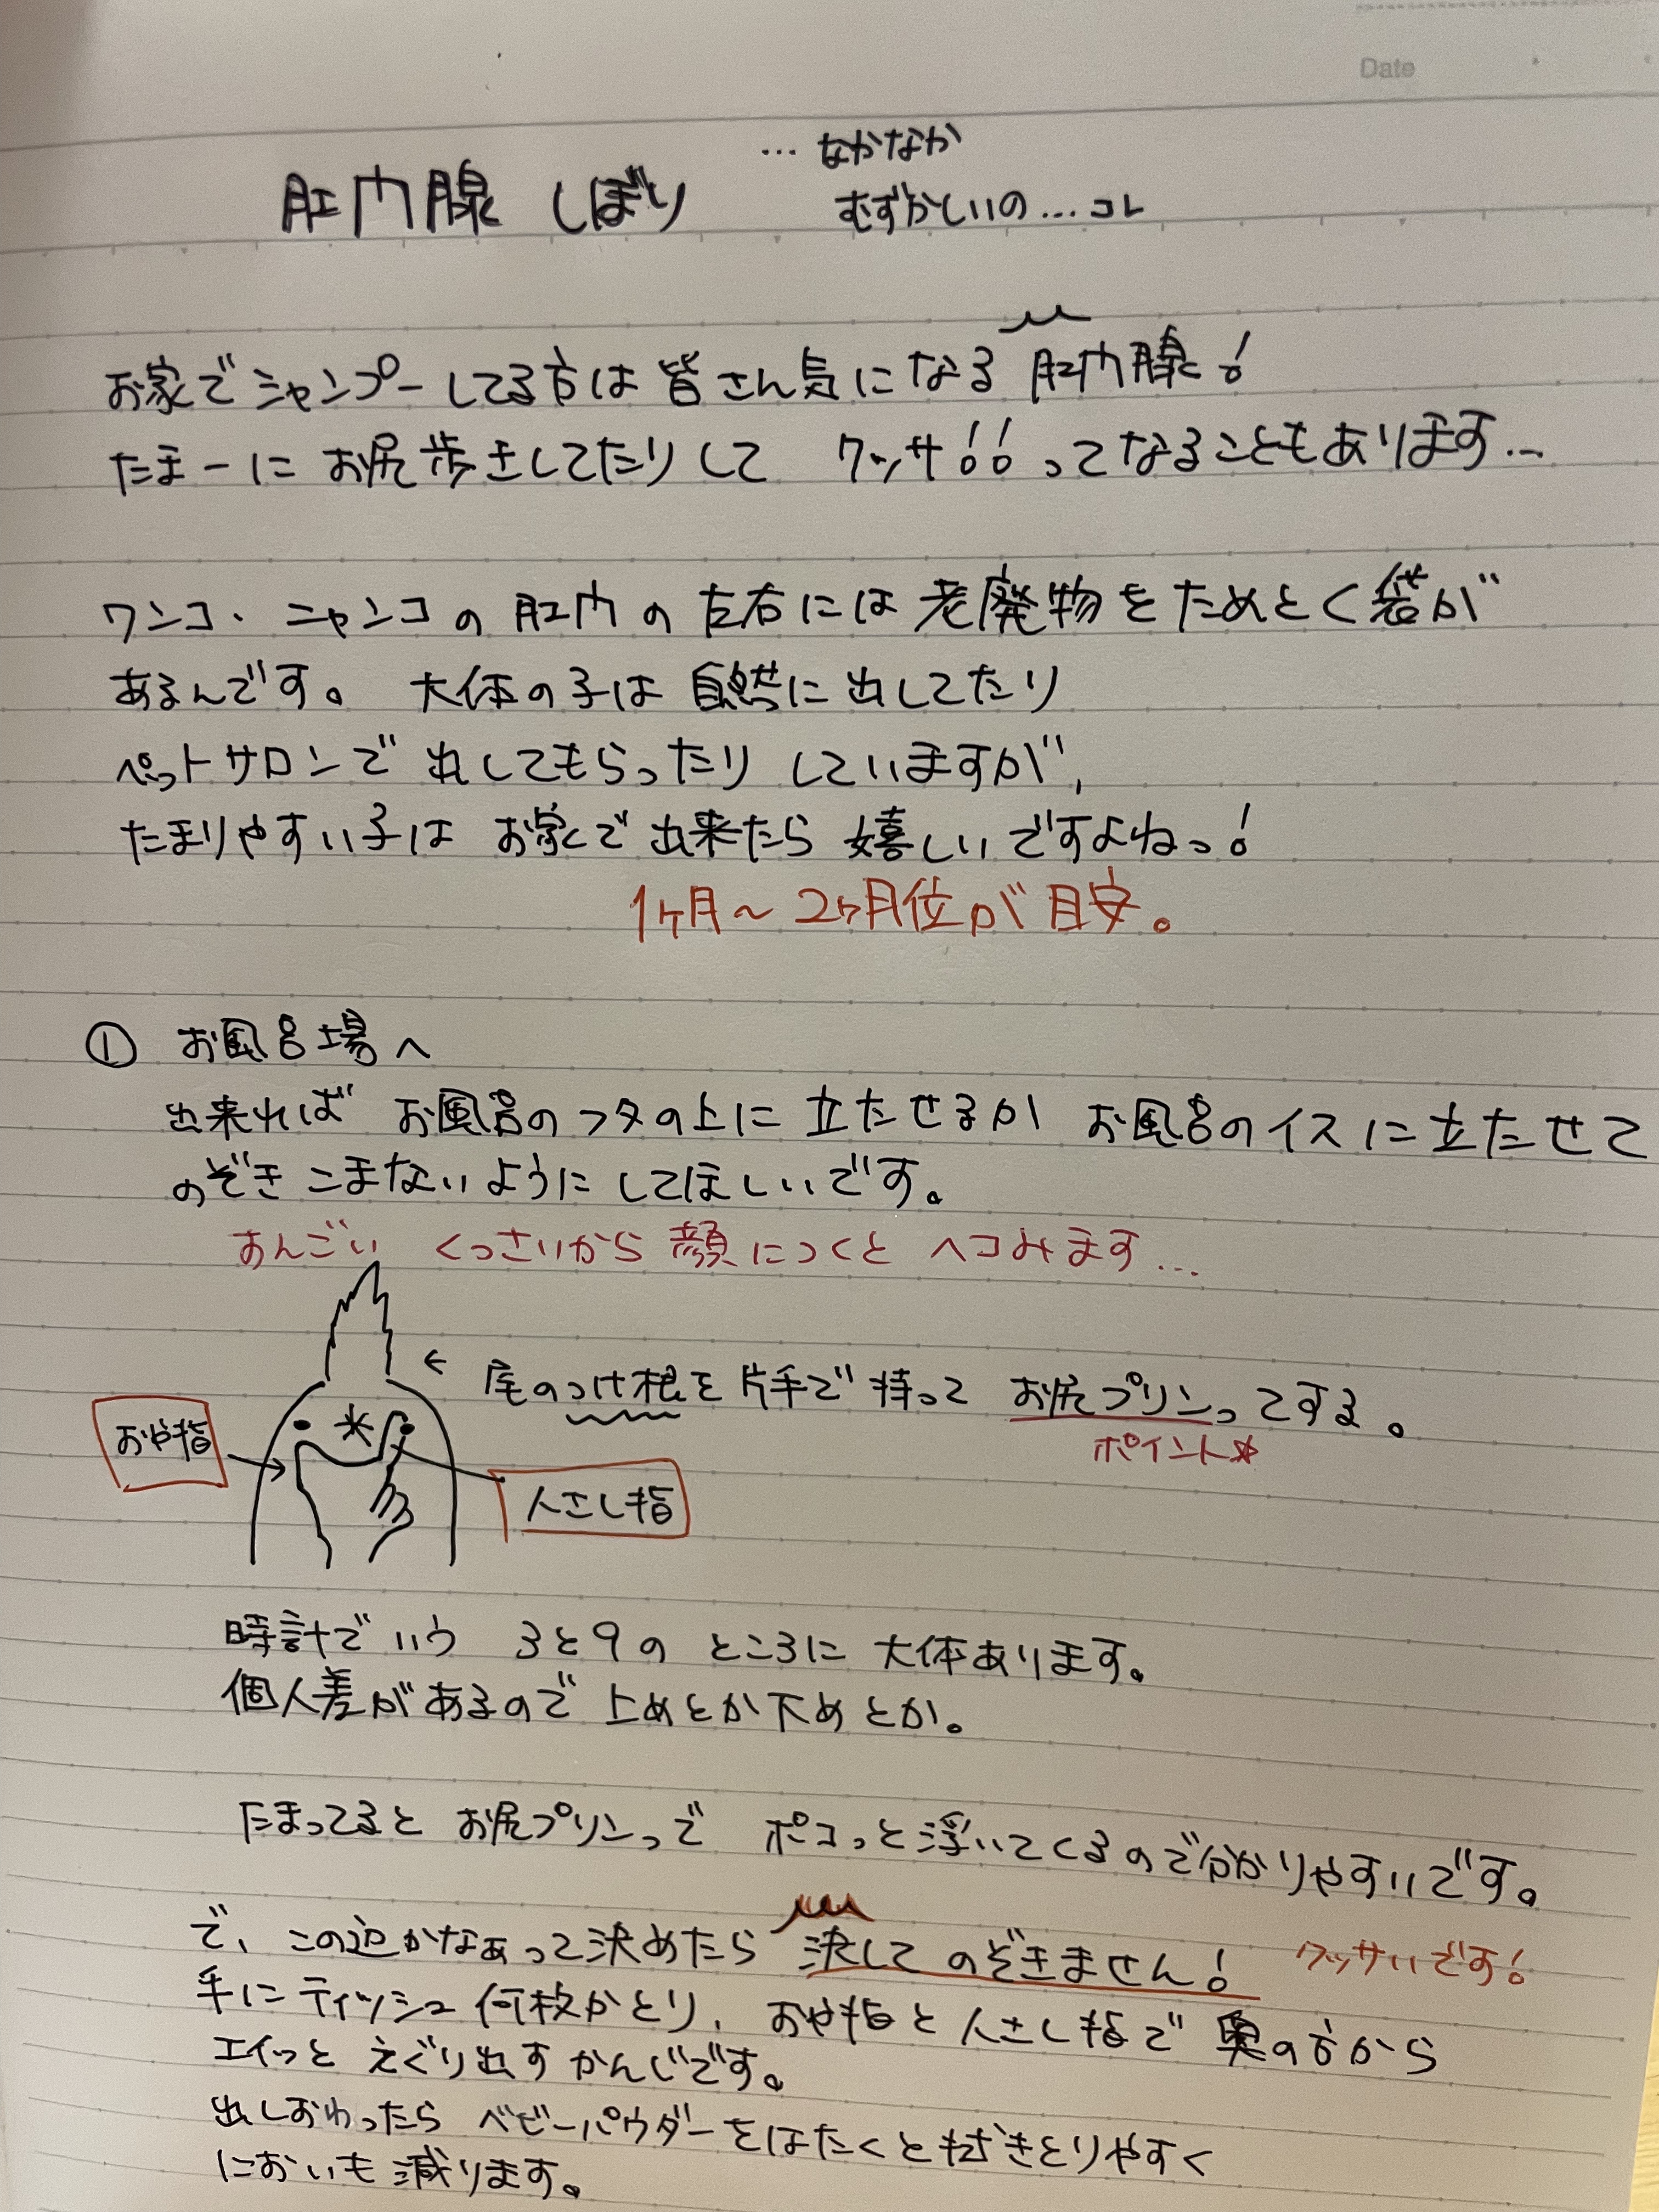 Date
肛門腺 しぼり
… なかなか
むずかしいの… コレ
お家でシャンプーしてる方は皆さん気になる 肛門腺!
たまーに お尻歩きしてたりして クッサ!!ってなることもあります…
ワンコ・ニャンコの 肛門の 左右には 老廃物をためとく袋が
あるんです。 大体の子は 自然に出してたり
ペットサロンで 出してもらったり していますが、
たまりやすい子は お家で 出来たら 嬉しいですよねっ!
1ヶ月〜2ヶ月位が目安。
① お風呂場へ
出来れば お風呂のフタの上に 立たせるか お風呂のイスに立たせて
のぞきこまないように してほしいです。
すんごい くっさいから 顔につくと ヘコみます…
← 尾のつけ根を片手で持って お尻プリンってする。
ポイント☆
おや指
人さし指
時計でいう 3と9の ところに 大体あります。
個人差があるので 上めとか下めとか。
たまってると お尻プリンって ポコっと浮いてくるので分かりやすいです。
で、この辺かなぁって決めたら 決して のぞきません! クッサいです!
手にティッシュ何枚かとり、おや指と人さし指で 奥の方から
エイっと えぐり出す かんじです。
出しおわったら ベビーパウダーをはたくと乾きとりやすく
においも 減ります。